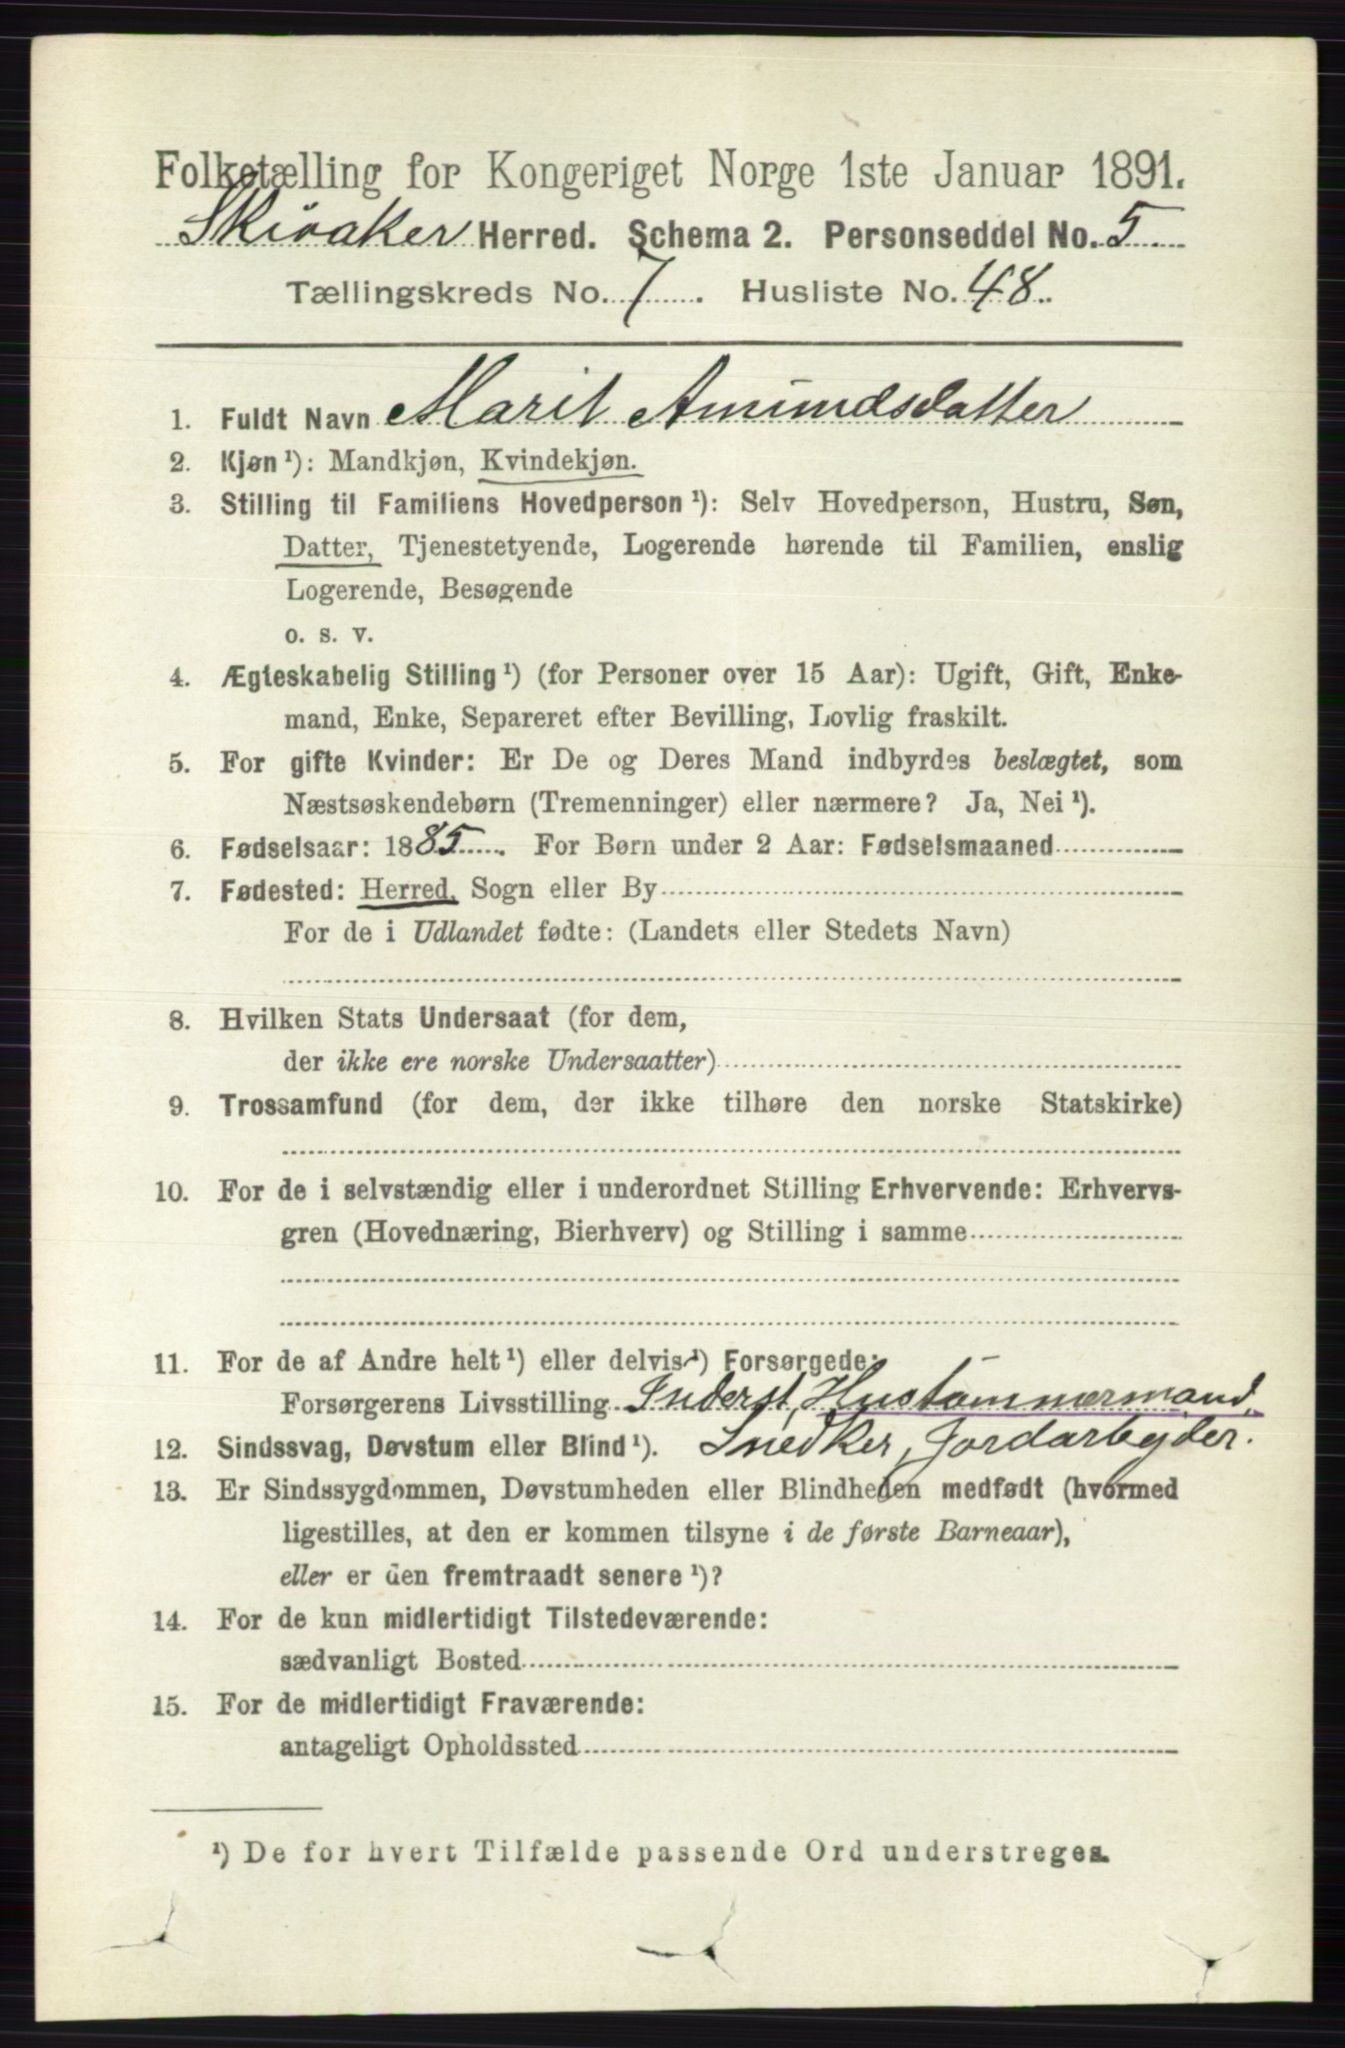 Folketælling for Kongeriget Norge 1ste Januar 1891.
Skiaaker Herred. Schema 2. Personseddel No. 5
Tællingskreds No. 7. Husliste No. 48.
1. Fuldt Navn Marit Amundsdatter
2. Kjøn¹): Mandkjøn, Kvindekjøn.
3. Stilling til Familiens Hovedperson¹): Selv Hovedperson, Hustru, Søn,
Datter, Tjenestetyende, Logerende hørende til Familien, enslig
Logerende, Besøgende
o. s. v.
4. Ægteskabelig Stilling¹) (for Personer over 15 Aar): Ugift, Gift, Enke-
mand, Enke, Separeret efter Bevilling, Lovlig fraskilt.
5. For gifte Kvinder: Er De og Deres Mand indbyrdes beslægtet, som
Næstsøskendebørn (Tremenninger) eller nærmere? Ja, Nei¹).
6. Fødselsaar: 1885. For Børn under 2 Aar: Fødselsmaaned
7. Fødested: Herred, Sogn eller By
For de i Udlandet fødte: (Landets eller Stedets Navn)
8. Hvilken Stats Undersaat (for dem,
der ikke ere norske Undersaatter)
9. Trossamfund (for dem, der ikke tilhøre den norske Statskirke)
10. For de i selvstændig eller i underordnet Stilling Erhvervende: Erhvervs-
gren (Hovednæring, Bierhverv) og Stilling i samme
11. For de af Andre helt¹) eller delvis¹) Forsørgede:
Forsørgerens Livsstilling Inderst, Hustømmermand,
12. Sindssvag, Døvstum eller Blind¹). Snedker, Jordarbejder.
13. Er Sindssygdommen, Døvstumheden eller Blindheden medfødt (hvormed
ligestilles, at den er kommen tilsyne i de første Barneaar),
eller er den fremtraadt senere¹)?
14. For de kun midlertidigt Tilstedeværende:
sædvanligt Bosted
15. For de midlertidigt Fraværende:
antageligt Opholdssted
¹) De for hvert Tilfælde passende Ord understreges.